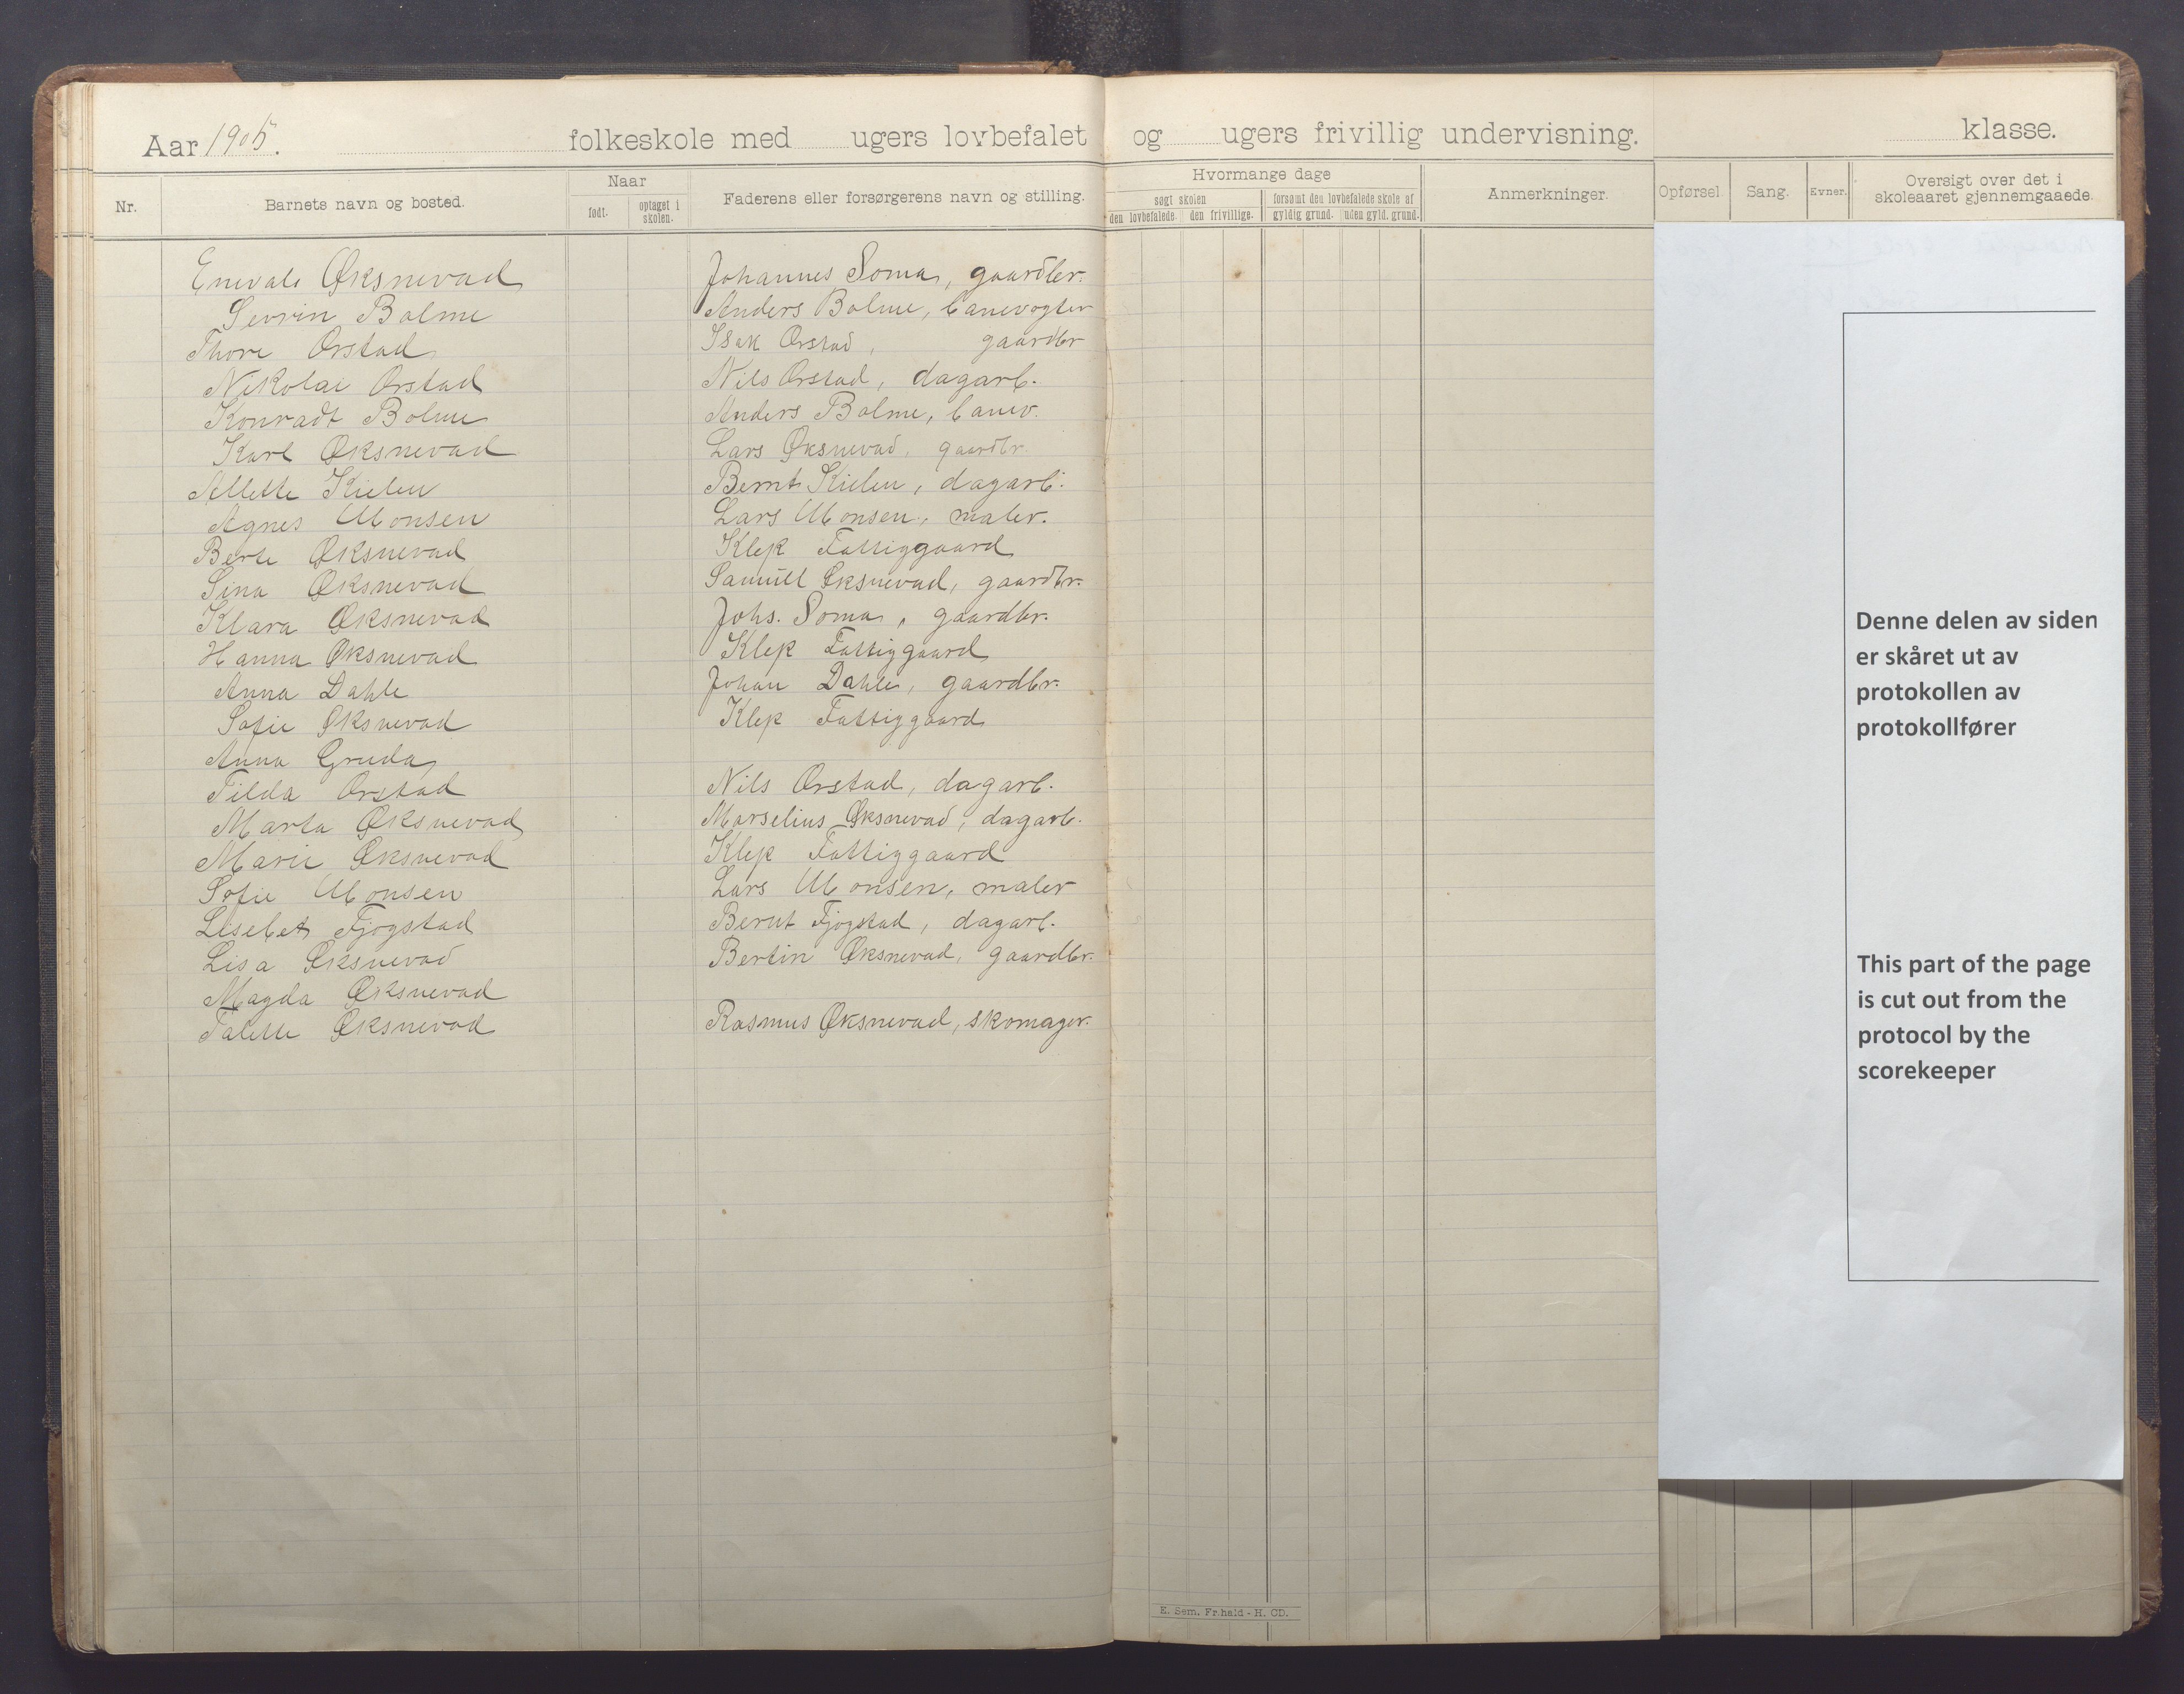 Aar 1905. folkeskole med ugers lovbefalet og ugers frivillig undervisning. klasse.
Nr. Barnets navn og bosted. Naar født. optaget i skolen. Faderens eller forsørgerens navn og stilling. Hvormange dage søgt skolen den lovbefalede. den frivillige. forsømt den lovbefalede skole af gyldig grund. uden gyld. grund. Anmerkninger. Opførsel. Sang. Evner. Oversigt over det i skoleaaret gjennemgaaede.
Enevald Øksnevad Johannes Soma, gaardbr.
Sevrin Bolme Anders Bolme, banevogter
Thore Orstad Isak Orstad, gaardbr
Nikolai Orstad Nils Orstad, dagarb.
Konradt Bolme Anders Bolme, banev.
Karl Øksnevad Lars Øksnevad, gaardbr
Allette Kielen Bernt Kielen, dagarb.
Agnes Monsen Lars Monsen, maler.
Berte Øksnevad Klep Fattiggaard
Sina Øksnevad Samuell Øksnevad, gaardbr.
Klara Øksnevad Johs. Soma, gaardbr.
Hanna Øksnevad Klep Fattiggaard
Anna Dahle Johan Dahle, gaardbr.
Sofie Øksnevad Klep Fattiggaard
Anna Gruda
Tilda Orstad Nils Orstad, dagarb.
Marta Øksnevad Marselius Øksnevad, dagarb.
Marie Øksnevad Klep Fattiggaard
Sofie Monsen Lars Monsen, maler
Lisebet Fjogstad Bernt Fjogstad, dagarb.
Lisa Øksnevad Bertin Øksnevad, gaardbr.
Magda Øksnevad
Talette Øksnevad Rasmus Øksnevad, skomager.
Denne delen av siden
er skåret ut av
protokollen av
protokollfører
This part of the page
is cut out from the
protocol by the
scorekeeper
E. Sem. Fr.hald - H. CD.